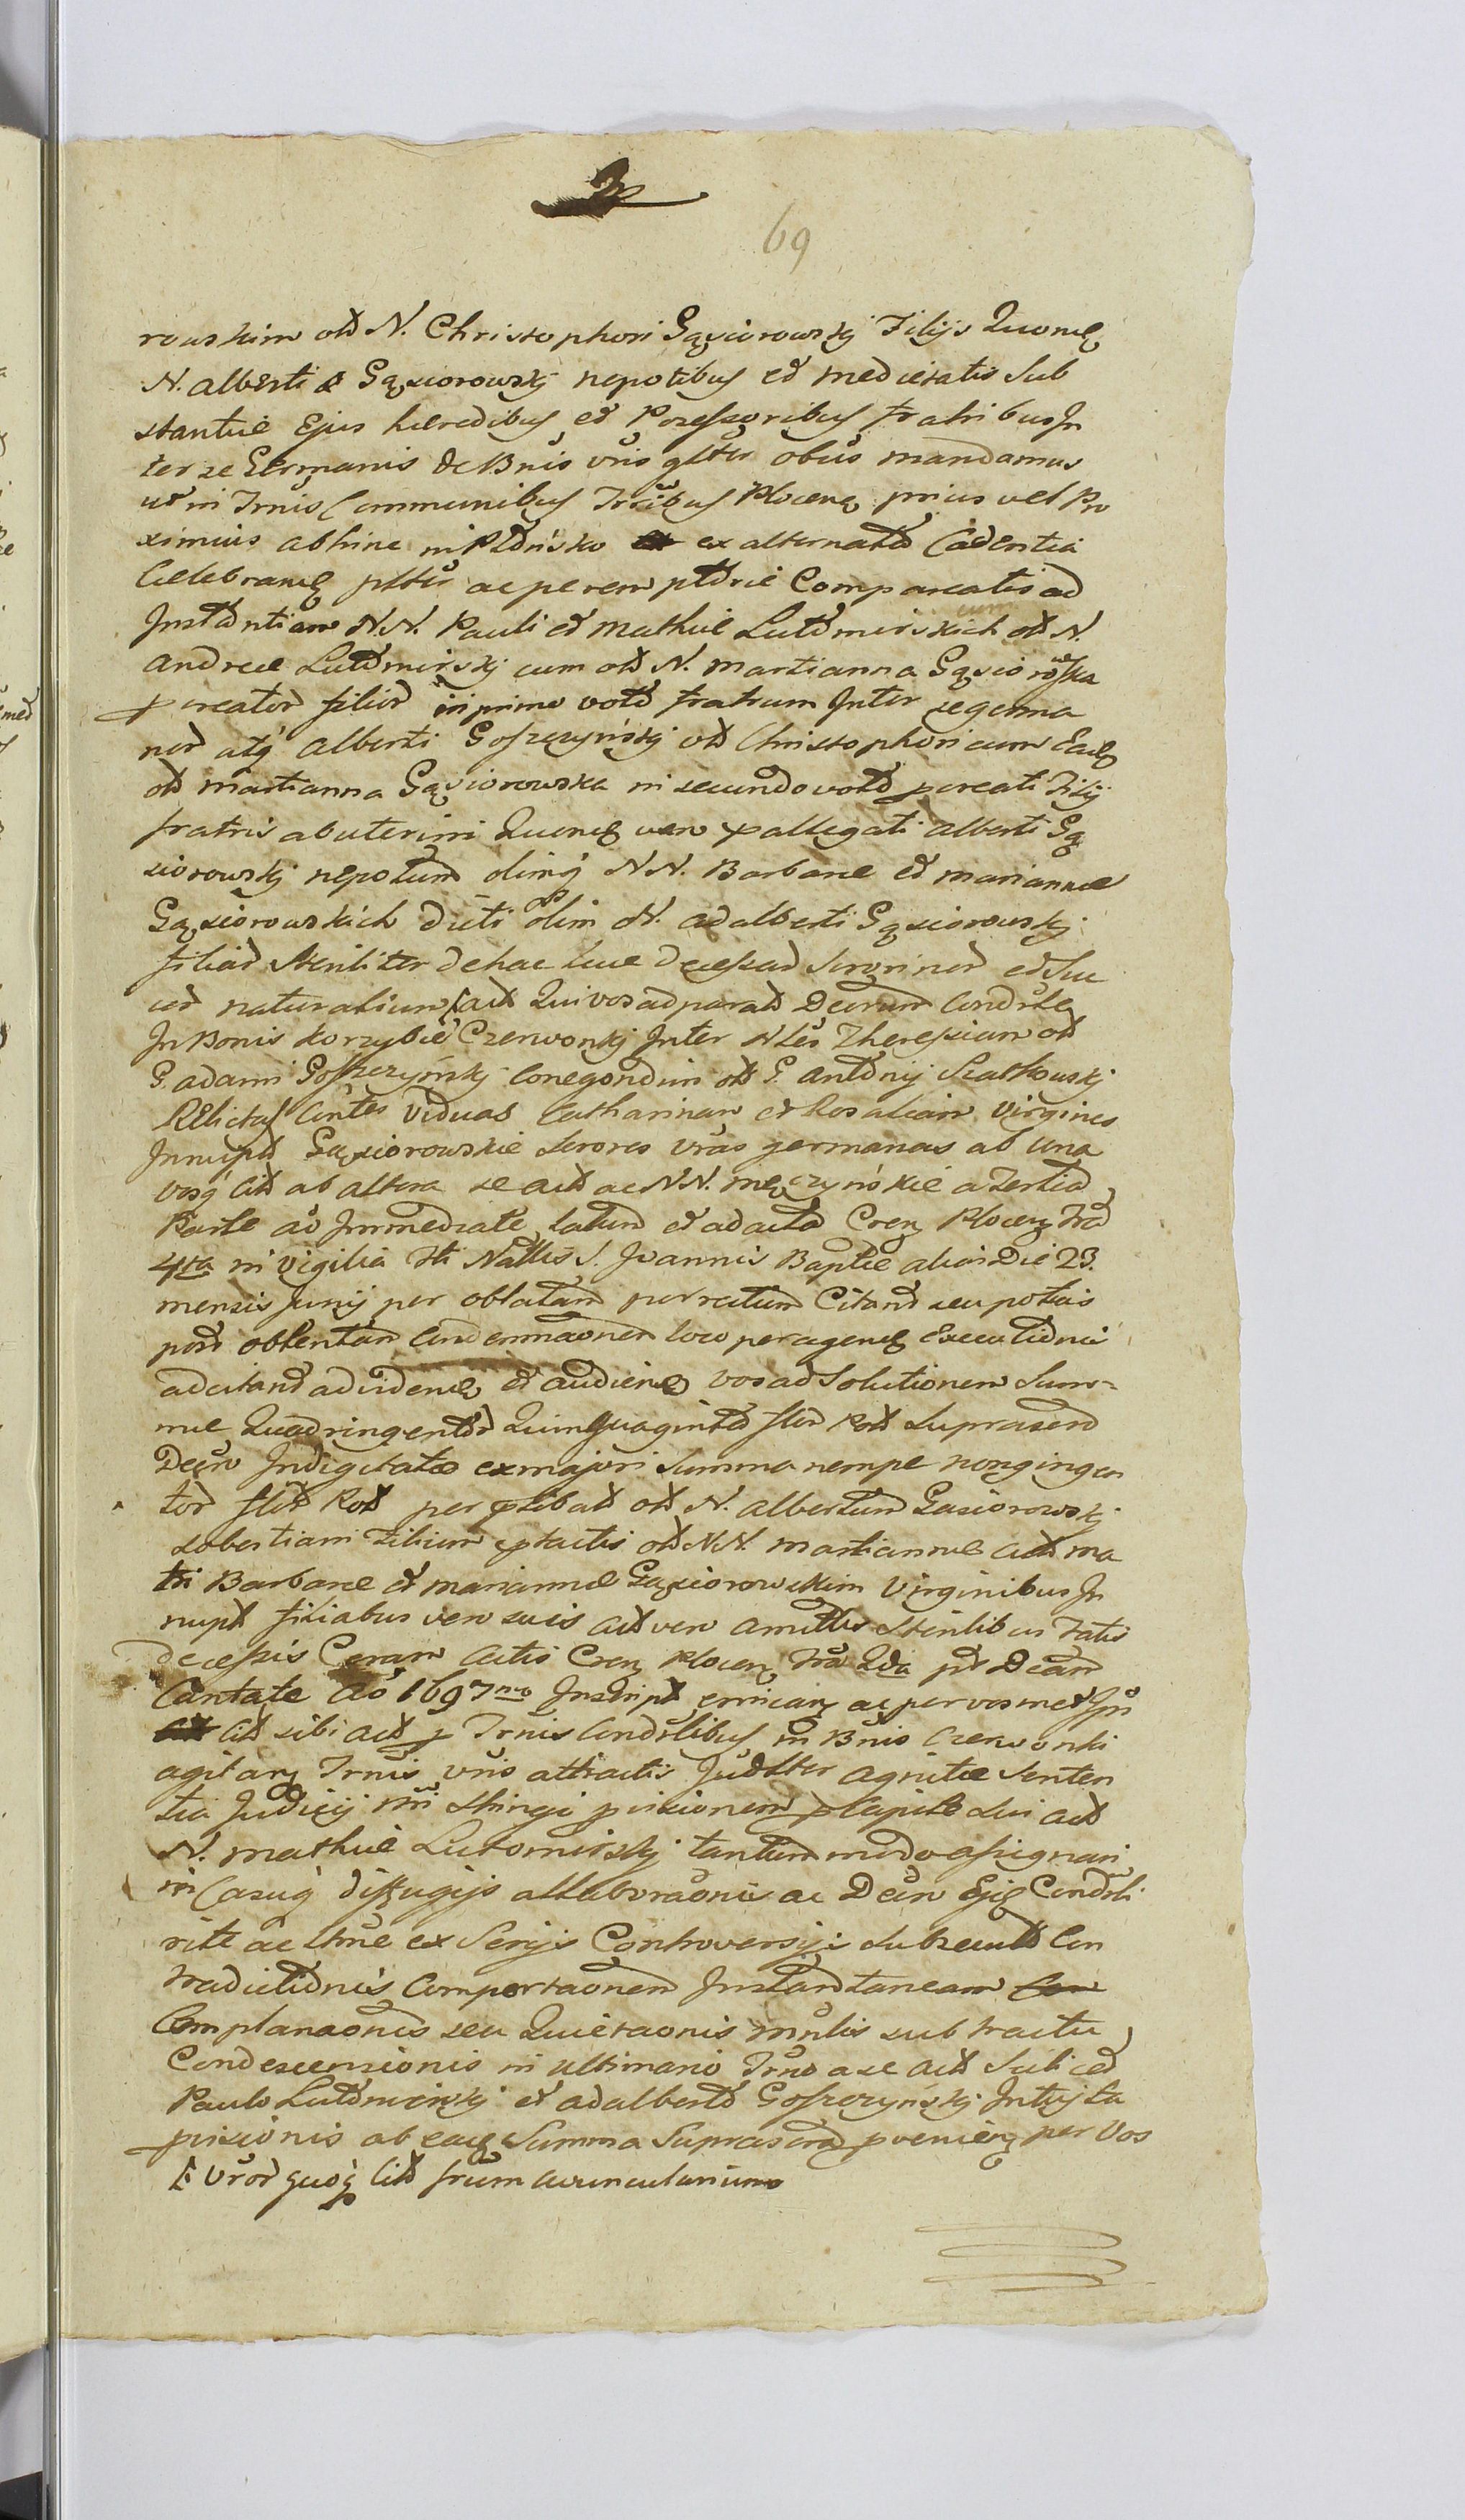 69
rowskim olim N. Christophori Gąsiorowskj Filijs Quond
N. Alberti Gąsiorowskj nepotibus et medietatis Sub
stantiæ Ejus hæredibus et Possessoribus fratribus In
ter se Germanis de Bnis vris glter obus mandamus
ut in Trnis Communibus Trribus Plocen prius vel Pro
ximius abhinc in Płońsko ex alternata Cadentia
Celebrand pltter ac peremptorie Compareatis ad
Instantiam N.N. Pauli et Mathiæ Lutomirskich cum olim N.
Andreæ Lutomirskj cum olim N. Martianna Gąsiorowska
pcreator filior in primo voto fratrum Inter se germa
nor atq Alberti Gosczyńskj olim Christophori cum Ead
olim Martianna Gąsiorowska in secundo voto pcreati Filij
fratris abuterini Quond vero pallegati Alberti Gą
siorowskj nepotum olimq NN. Barbaræ et Mariannæ
Gąsiorowskich dicti olim N. Adalberti Gąsiorowskj
filiar steriliter de hac luce decessar Sororinor et Suc
cor naturalium Act Qui vos ad parata Decrum Condrle
In Bonis Korzybie Czerwonkj Inter Nles Theressiam olim
G. Adami Gosczyńskj Conegondim olim G. Antonij Szatkowskj
Relictas Contes Viduas Catharinam et Rosaliam Virgines
Innupt Gąsiorowskie Sorores vras germanas ab una
vosq Cit ab altera se Act ac NN. Męczyńskie a Tertia
Parte ao Immediate latum et ad acta Cren Plocen Fra
4ta in Vigilia fti Natltis S. Joannis Baptæ alias Die 23.
mensis Junij per oblatam porrectum Citand seu potius
post obtentam Condemnaonem loco peragend Executionis
adcitand ad vidend et audiend vos ad Solutionem Sum-
mæ Quadringentor Quinquaginta flor Pol Suprascrd
Decro Indigitatæ ex majori Summa nempe nongingen
tor flor Pol per pdibat olim N. Albertum Gasiorowskj
Lobertiani Filium ptactis olim NN. Martiannæ Act ma
tri Barbaræ et Mariannæ Gąsiorowskim Virginibus In
nupt filiabus vero suis Act vero amittis sterilibus fatis
decessis Coram Actis Cren Plocen Fra 2da pt Dcam
Cantate Ao 1697mo Inscript emican ac per vosmet Ips
Cit sibi Act p Trnis Condrlibus in Bnis Czerwonki
agitan Trnis vris attractis Judlter agnitæ Senten
tia Judicij nri stringi pvisionem p Capite Sui Act
N. Mathiæ Lutomirskj tantum modo assignari
in Casuq diffugijs allaboraonis ac Decro Ejusd Condrli
rite ac lttme ex Serijs Controversijs Subsecuto Con
tradictionis Comportaonem Instantaneam
Complanaonis seu Quietaonis mnlis sub tractu
Condescensionis in ultimario Trno a se Act Scilicet
Paulo Lutomirskj et Adalberto Gosczyńskj Intuitu
pvisionis ab ead Summa Suprascrd pvenien per Vos
vror quoq Cit frum avuncularium